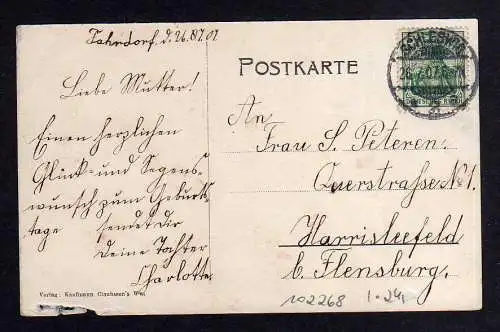 Fahrdorf, d. 26.8.7.07
Liebe Mutter!
Einen herzlichen
Glück- und Segens-
wunsch zum Geburts-
tage sendet dir
deine Tochter
Charlotte
Verlag: Kaufmann Clausen's Wwe
POSTKARTE
SCHLESWIG
An
Frau S. Petersen.
Querstrasse No 1.
Harrisleefeld
b. Flensburg.
102268 1.24